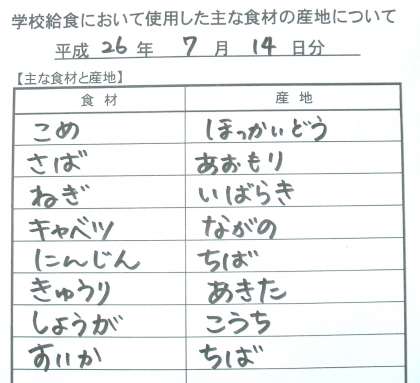 学校給食において使用した主な食材の産地について
平成 26 年 7 月 14 日分
【主な食材と産地】
食材 産地
こめ ほっかいどう
さば あおもり
ねぎ いばらき
キャベツ ながの
にんじん ちば
きゅうり あきた
しょうが こうち
すいか ちば